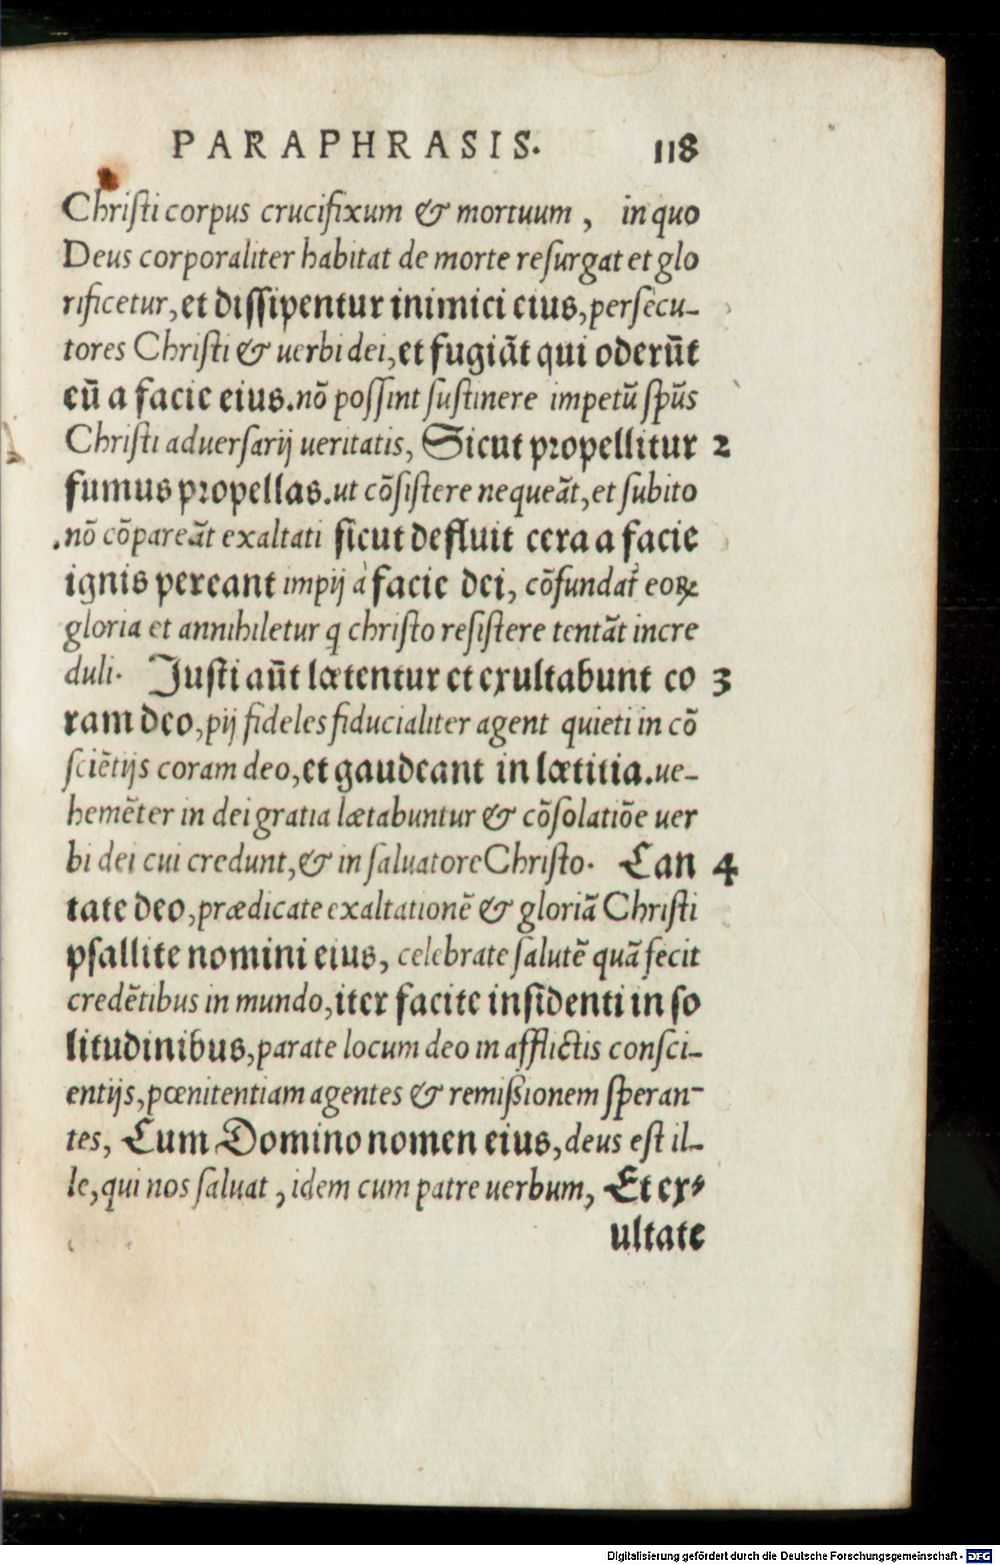 PARAPHRASIS. 118
Christi corpus crucifixum & mortuum, in quo
Deus corporaliter habitat de morte resurgat et glo
rificetur, et dissipentur inimici eius, persecu-
tores Christi & uerbi dei, et fugiãt qui oderũt
eũ a facie eius. nõ possint sustinere impetũ spũs
Christi aduersarij ueritatis, Sicut propellitur 2
fumus propellas. ut cõsistere nequeãt, et subito
.nõ cõpareãt exaltati sicut defluit cera a facie
ignis pereant impij à facie dei, cõfundat̃ eoꝝ
gloria et annihiletur q christo resistere tentãt incre
duli. Justi aũt lætentur et exultabunt co 3
ram deo, pij fideles fiducialiter agent quieti in cõ
sciẽtijs coram deo, et gaudeant in lætitia. ue-
hemẽter in dei gratia lætabuntur & cõsolatiõe uer
bi dei cui credunt, & in saluatore Christo. Can 4
tate deo, prædicate exaltationẽ & gloriã Christi
psallite nomini eius, celebrate salutẽ quã fecit
credẽtibus in mundo, iter facite insidenti in so
litudinibus, parate locum deo in afflictis consci-
entijs, pœnitentiam agentes & remissionem speran-
tes, Cum Domino nomen eius, deus est il-
le, qui nos saluat, idem cum patre uerbum, Et ex-
ultate
Digitalisierung gefördert durch die Deutsche Forschungsgemeinschaft - DFG